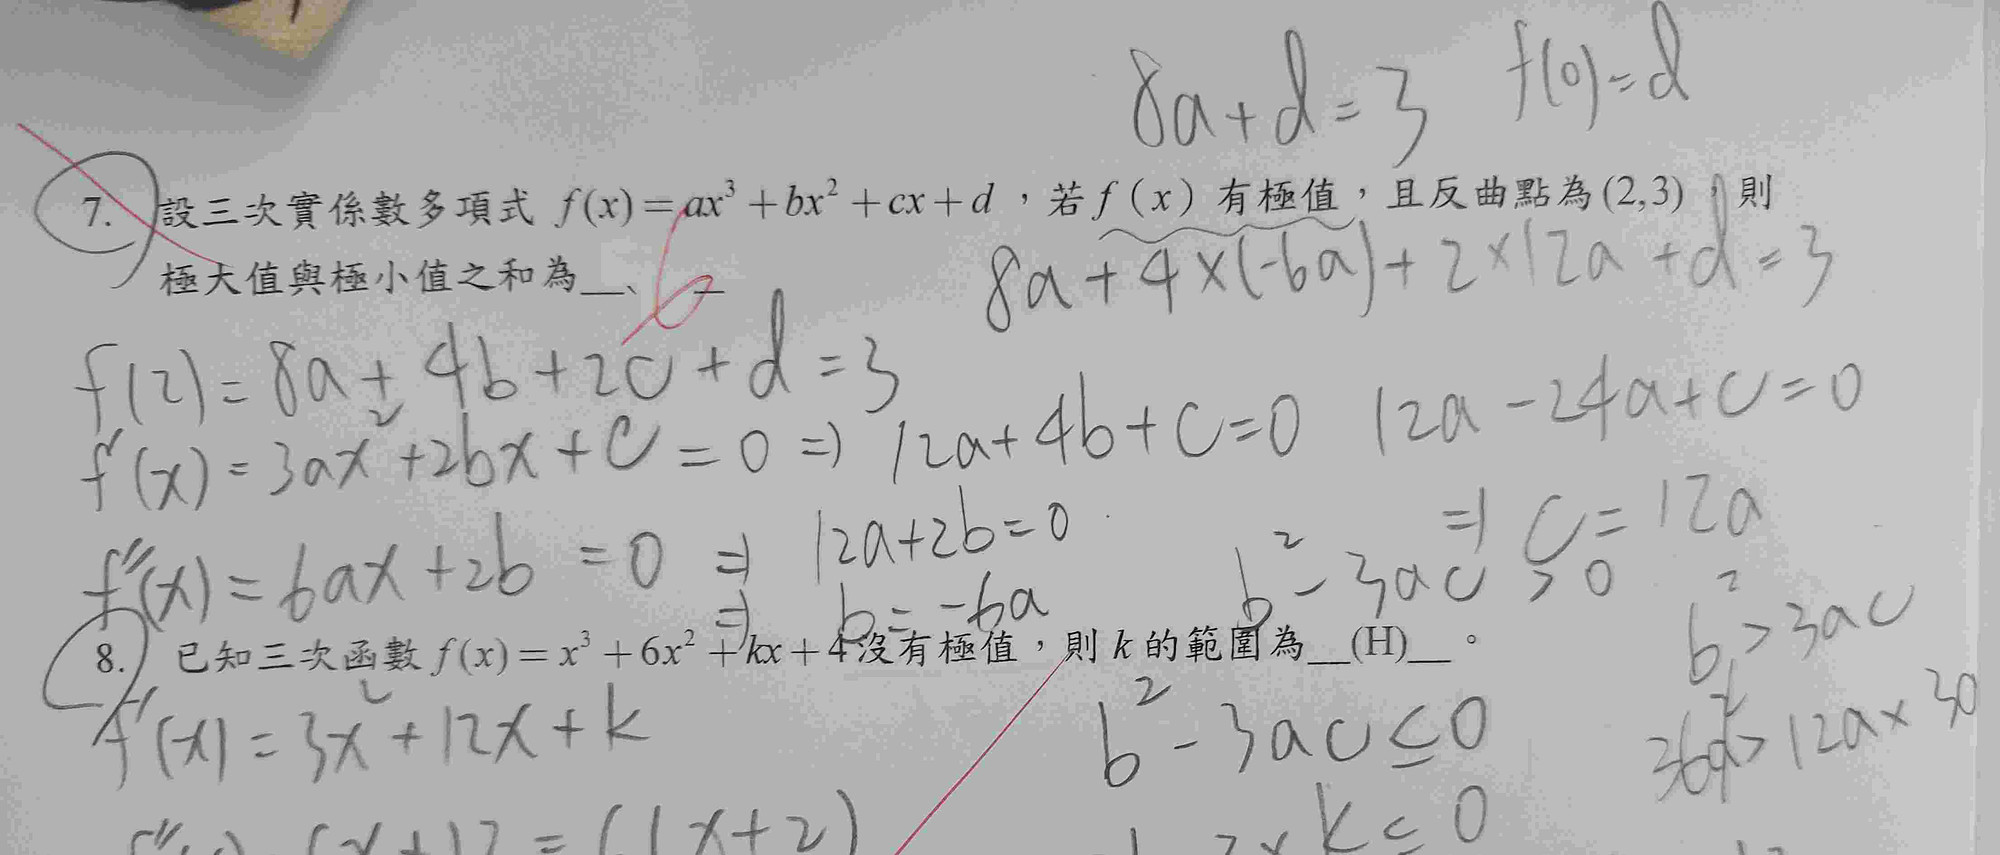 8a+d=3 f(0)=d
7. 設三次實係數多項式 f(x)=ax³+bx²+cx+d,若 f(x) 有極值,且反曲點為(2,3),則
極大值與極小值之和為__、__
6
8a+4×(-6a)+2×12a+d=3
f(2)=8a+4b+2c+d=3
f'(x)=3ax²+2bx+c=0 ⇒ 12a+4b+c=0 12a-24a+c=0
⇒ c=12a
f''(x)=6ax+2b=0 ⇒ 12a+2b=0
⇒ b=-6a
b²-3ac>0
b²>3ac
8. 已知三次函數 f(x)=x³+6x²+kx+4沒有極值,則 k 的範圍為__(H)__。
f'(x)=3x²+12x+k
b²-3ac≤0